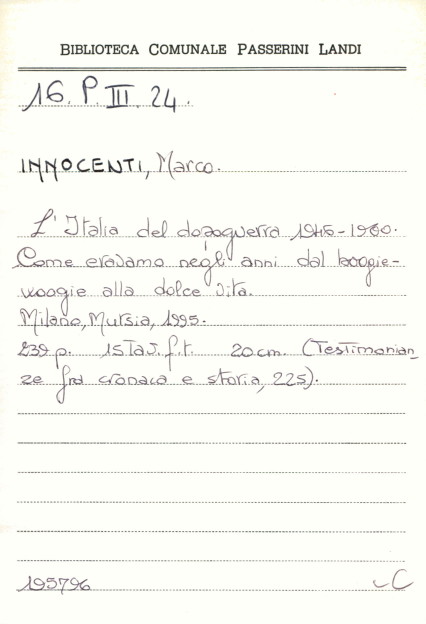 BIBLIOTECA COMUNALE PASSERINI LANDI
16. P. III. 24.
INNOCENTI, Marco.
L'Italia del dopoguerra 1946-1960.
Come eravamo negli anni dal boogie-
woogie alla dolce vita.
Milano, Mursia, 1995.
239 p. 15 tav. f.t. 20 cm. (Testimonian
ze fra cronaca e storia, 225).
195796